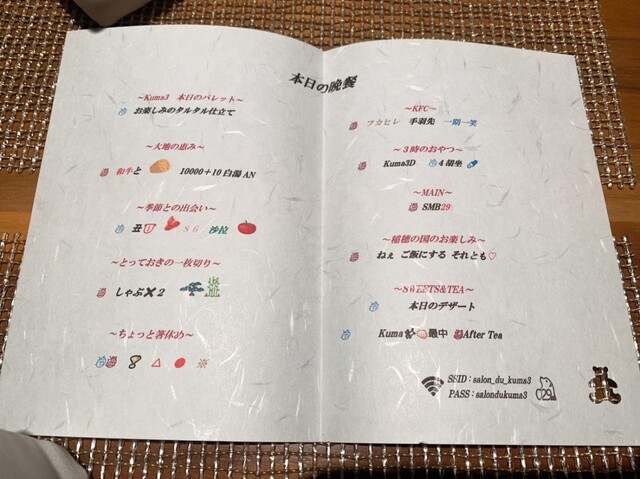 本日の晩餐
～Kuma3 本日のパレット～
お楽しみのタルタル仕立て
～大地の恵み～
和牛と 10000＋10 白湯 AN
～季節との出会い～
丑 86 沙拉
～とっておきの一枚切り～
しゃぶ✖2
～ちょっと箸休め～
～KFC～
フカヒレ 手羽先 一期一笑
～3時のおやつ～
Kuma3D 4胡坐
～MAIN～
SMB29
～稲穂の国のお楽しみ～
ねぇ ご飯にする それとも♡
～SWEETS&TEA～
本日のデザート
Kuma 最中 After Tea
SSID：salon_du_kuma3
PASS：salondukuma3
29